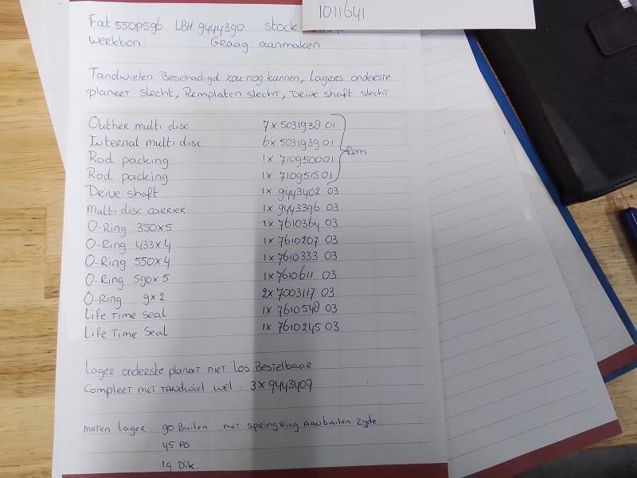 1011641
Fat 550P596 LBH 9444390 stock
Werkbon. Graag aanmaken
Tandwielen Beschadigd zou nog kunnen, Lagers onderste
planeet slecht, Remplaten slecht, Drive shaft slecht
Outher multi disc 7x 5031938 01
Internal multi disc 6x 5031939 01
Rod packing 1x 7109500 01 Rem
Rod packing 1x 7109515 01
Drive shaft 1x 9443402 03
Multi disc carrier 1x 9443396 03
O-Ring 350x5 1x 7610364 03
O-Ring 433x4 1x 7610207 03
O-Ring 550x4 1x 7610333 03
O-Ring 590x5 1x 7610611 03
O-Ring 9x2 2x 7003117 03
Life Time Seal 1x 7610548 03
Life Time Seal 1x 7610245 03
Lager onderste planeet niet los Bestelbaar
Compleet met tandwiel wel. 3x 9443407
maten lager 90 Buiten met springring aan buiten zyde.
45 
19 Dik.